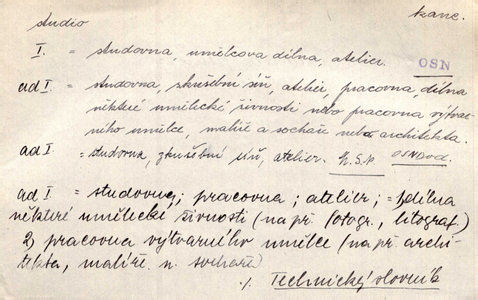 studio kanc.
I. = studovna, umělcova dílna, atelier. OSN
ad I. = studovna, zkušební síň, atelier, pracovna, dílna
některé umělecké živnosti nebo pracovna výtvar-
ného umělce, malíře a sochaře nebo architekta.
ad I = studovna, zkušební síň, atelier.
ad I = studovna; pracovna; atelier; = 1) dílna
některé umělecké živnosti (na př fotogr., litograf.)
2) pracovna výtvarného umělce (na př. archi-
tekta, malíře n. sochaře)
Technický slovník